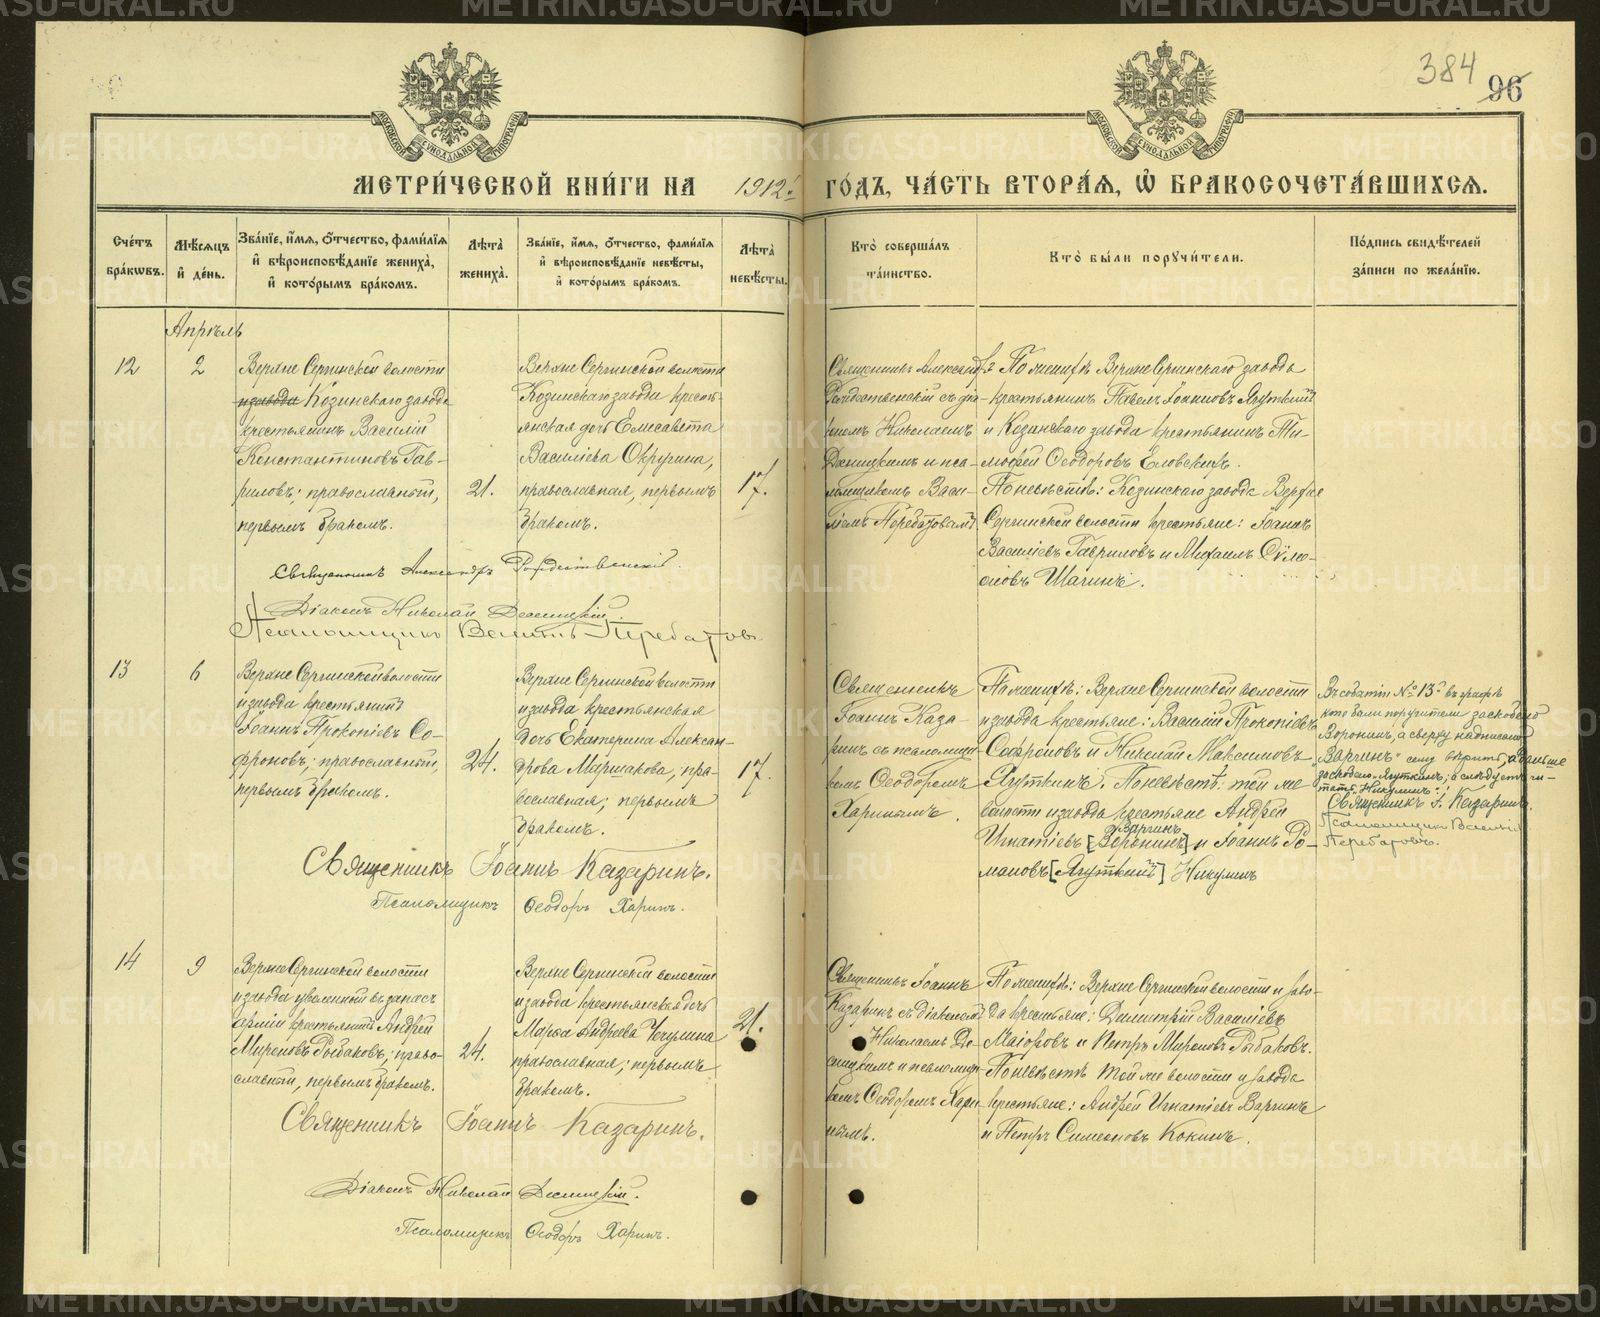 384
96
МЕТРИ́ЧЕСКОЙ КНИ́ГИ НА 1912 г. ГО́ДЪ, ЧА́СТЬ ВТОРА́Я, Ѡ БРАКОСОЧЕТА́ВШИХСЯ.
Сче́тъ бра́кѡвъ.
Мѣ́сяцъ и де́нь.
Зва́нїе, и́мя, о́тчество, фами́лїя и вѣроисповѣ́данїе жениха̀, и кото́рымъ бра́комъ.
Лѣта̀ жениха̀.
Зва́нїе, и́мя, о́тчество, фами́лїя и вѣроисповѣ́данїе невѣ́сты, и кото́рымъ бра́комъ.
Лѣта̀ невѣ́сты.
Кто̀ соверша́лъ та́инство.
Кто̀ бы́ли порꙋчи́тели.
По́дпись свидѣ́телей за́писи по жела́нїю.
Апрѣль
12
2
Верхне Сергинской волости
и завода Козинскаго завода
крестьянинъ Василій
Константиновъ Гав-
риловъ; православный,
первымъ бракомъ.
21.
Верхне Сергинской волости
Козинскаго завода кресть-
янская дочь Елисавета
Василіева Округина,
православная, первымъ
бракомъ.
17.
Священникъ Александръ
Рождественскій съ діа-
кономъ Николаемъ
и пса-
ломщикомъ Васи-
ліемъ Перебатовымъ
По женихѣ Верхне Сергинскаго завода
крестьянинъ Павелъ Іоанновъ Ягуткинъ
и Козинскаго завода крестьянинъ Ти-
мофей Ѳеодоровъ Еловскихъ.
По невѣстѣ: Козинскаго завода Верхне
Сергинской волости крестьяне: Іоаннъ
Василіевъ Гавриловъ и Михаилъ
Шагинъ.
Священникъ Александръ Рождественскій.
Діаконъ Николай
Псаломщикъ Василій Перебатовъ
13
6
Верхне Сергинской волости
и завода крестьянинъ
Іоаннъ Прокопіевъ Со-
фроновъ; православный,
первымъ бракомъ.
24.
Верхне Сергинской волости
и завода крестьянская
дочь Екатерина Алексан-
дрова Маршакова, пра-
вославная; первымъ
бракомъ.
17.
Священникъ
Іоаннъ Каза-
ринъ съ псаломщи-
комъ Ѳеодоромъ
Харинымъ.
По женихѣ: Верхне Сергинской волости
и завода крестьяне: Василій Прокопіевъ
Софроновъ и Николай Максимовъ
Ягуткинъ. По невѣстѣ: той же
волости и завода крестьяне Андрей
Варгинъ
Игнатіевъ [Воронинъ] и Іоаннъ Ро-
мановъ [Ягуткинъ] Никулинъ
Въ событіи № 13й въ графѣ
кто были поручители заскоблено
Воронинъ, а сверху надписано
"Варгинъ" сему вѣрить, а дальше
заскоблено Ягуткинъ; а слѣдуетъ чи-
тать "Никулинъ".
Священникъ І. Казаринъ.
Псаломщикъ Василій
Перебатовъ.
Священникъ Іоаннъ Казаринъ.
Псаломщикъ Ѳеодоръ Харинъ.
14
9
Верхне Сергинской волости
и завода уволенный въ запасъ
арміи крестьянинъ Андрей
Мироновъ Рыбаковъ; право-
славный, первымъ бракомъ.
24.
Верхне Сергинской волости
и завода крестьянская дочь
Марѳа Андреева Чегулина
православная; первымъ
бракомъ.
21.
Священникъ Іоаннъ
Казаринъ съ діакономъ
Николаемъ
и псаломщи-
комъ Ѳеодоромъ Хари-
нымъ.
По женихѣ: Верхне Сергинской волости и заво-
да крестьяне: Димитрій Василіевъ
Маіоровъ и Петръ Мироновъ Рыбаковъ.
По невѣстѣ той же волости и завода
крестьяне: Андрей Игнатіевъ Варгинъ
и Петръ Симеоновъ Кокинъ.
Священникъ Іоаннъ Казаринъ.
Діаконъ Николай
Псаломщикъ Ѳеодоръ Харинъ.
METRIKI.GASO-URAL.RU